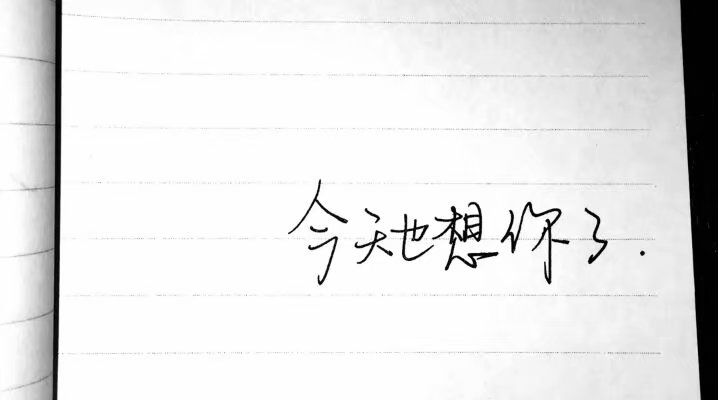 今天也想你了.